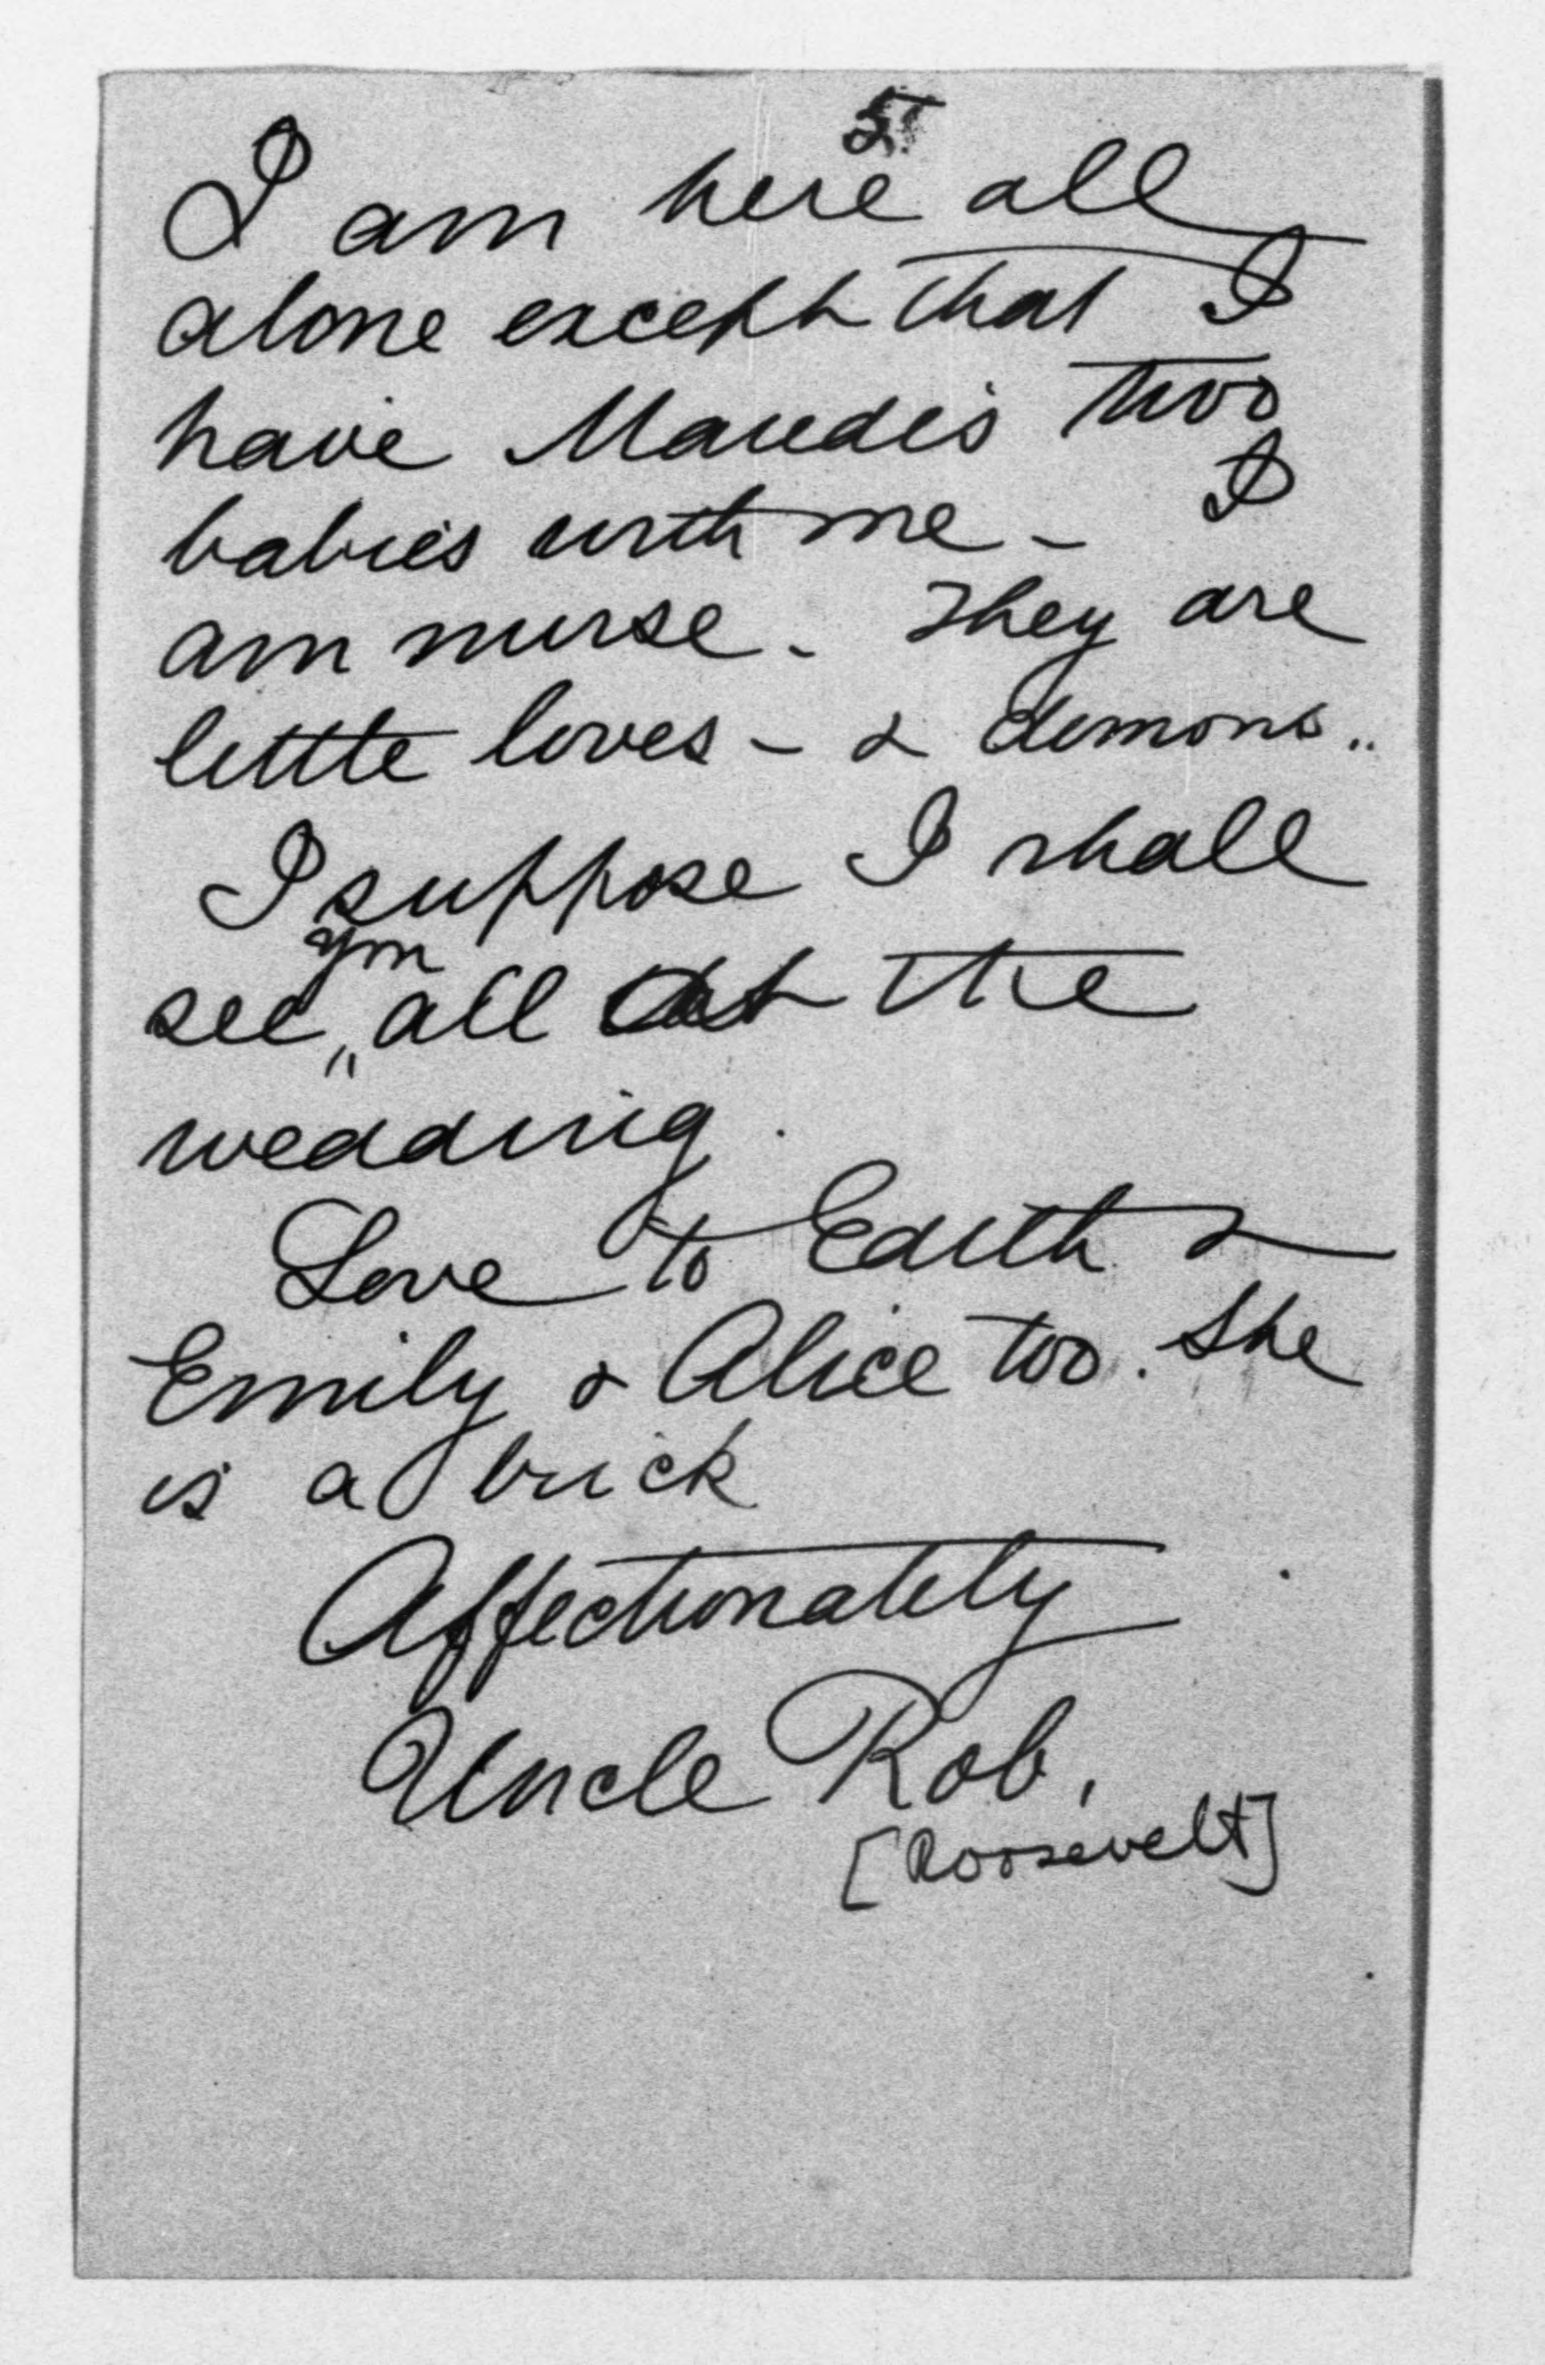 5
I am here all
alone except that I
have Maude's two
babies with me - I
am nurse. They are
little loves - & demons..
I suppose I shall
you
see " all at the
wedding.
Love to Edith &
Emily & Alice too. She
is a brick
Affectionately
Uncle Rob.
[Roosevelt]